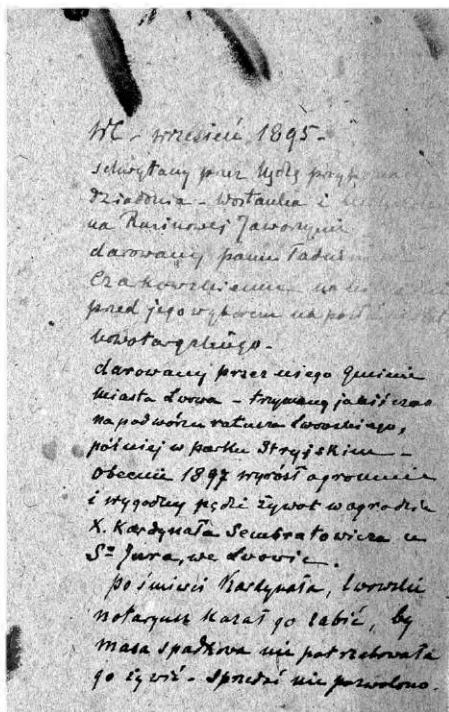 wrzesień 1895 -
schwytany przez
dziadonia - Wostanka i
na Rusinowej Jaworzynie
darowany panu
Czakowskiemu
przed jego wyborem na
nowotarskiego -
darowany przez niego gminie
miasta Lwowa - trzymany jakiś czas
na podwórzu ratusza lwowskiego,
później w parku Stryjskim -
obecnie 1897 wyrósł ogromnie
i wygodny pędzi żywot w ogrodzie
X. Kardynała Sembratowicza u
Sgo Jura, we Lwowie.
po śmierci Kardynała, lwowski
notaryusz kazał go zabić, by
masa spadkowa nie potrzebowała
go żywić - sprzedać nie pozwolono.